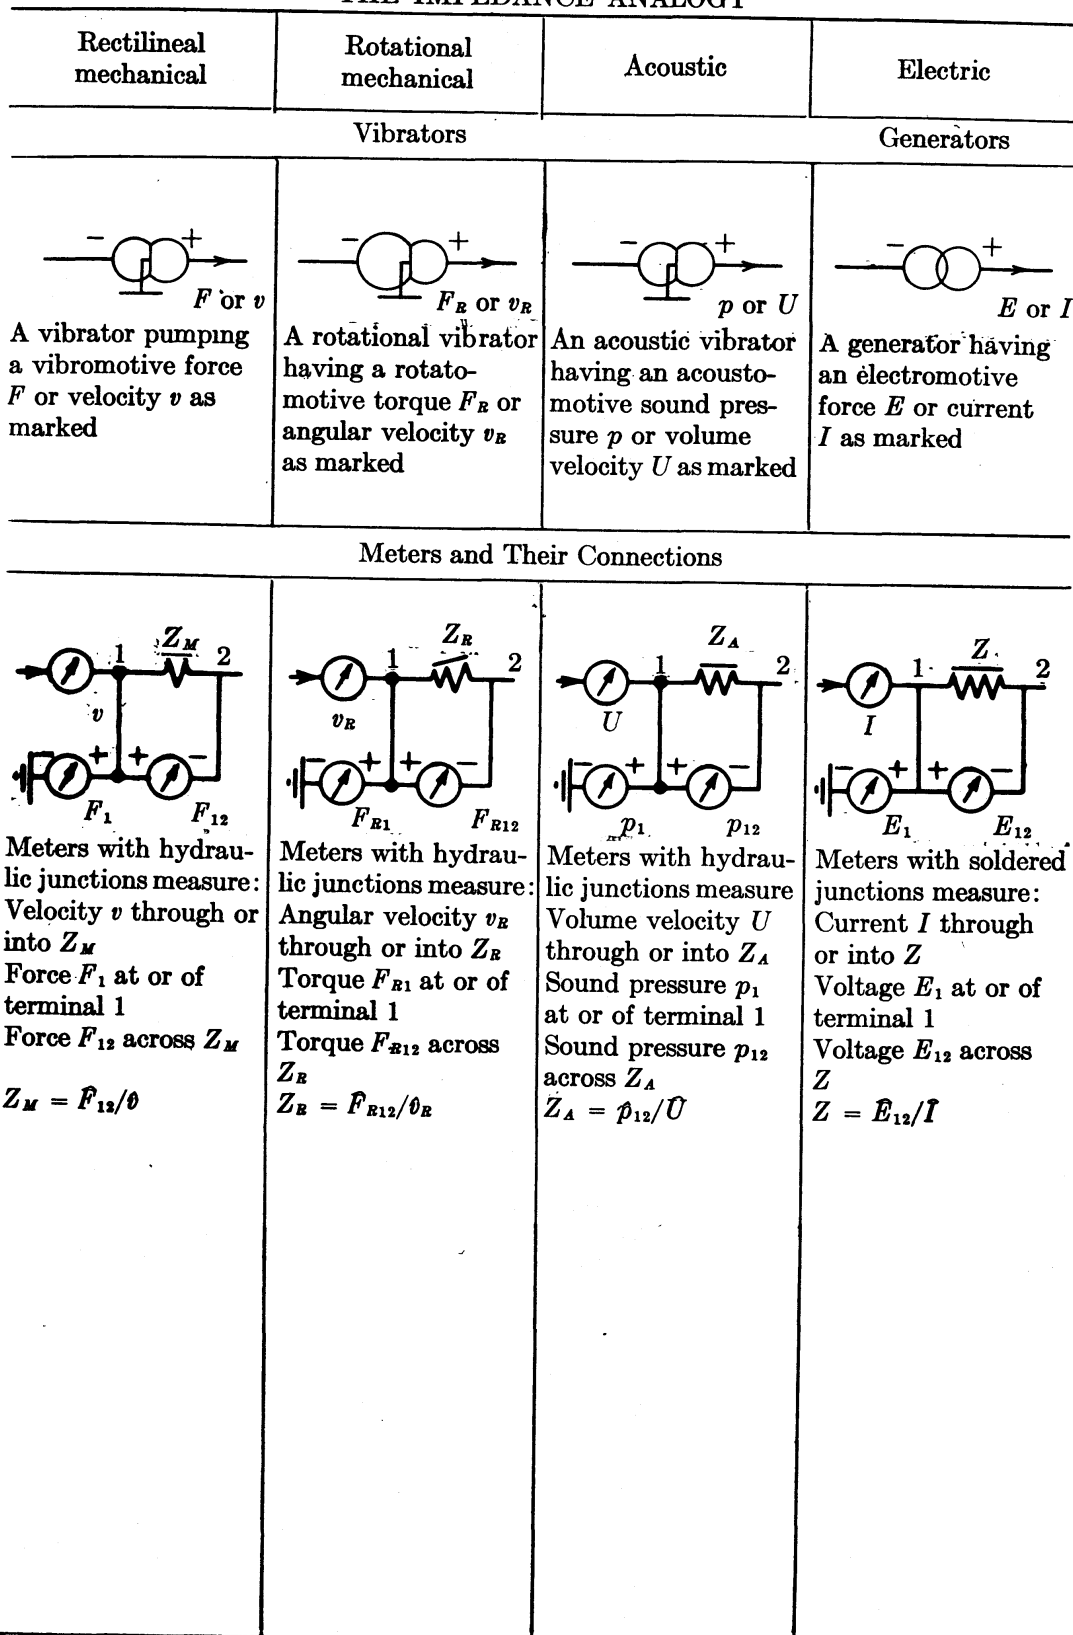 THE IMPEDANCE ANALOGY
Rectilineal
mechanical
Rotational
mechanical
Acoustic
Electric
Vibrators
Generators
− +
F or v
A vibrator pumping
a vibromotive force
F or velocity v as
marked
− +
F_R or v_R
A rotational vibrator
having a rotato-
motive torque F_R or
angular velocity v_R
as marked
− +
p or U
An acoustic vibrator
having an acousto-
motive sound pres-
sure p or volume
velocity U as marked
− +
E or I
A generator having
an electromotive
force E or current
I as marked
Meters and Their Connections
1 Z_M 2
v
− + + −
F_1 F_12
Meters with hydrau-
lic junctions measure:
Velocity v through or
into Z_M
Force F_1 at or of
terminal 1
Force F_12 across Z_M
Z_M = F̂_12/v̂
1 Z_R 2
v_R
− + + −
F_R1 F_R12
Meters with hydrau-
lic junctions measure:
Angular velocity v_R
through or into Z_R
Torque F_R1 at or of
terminal 1
Torque F_R12 across
Z_R
Z_R = F̂_R12/v̂_R
1 Z_A 2
U
− + + −
p_1 p_12
Meters with hydrau-
lic junctions measure
Volume velocity U
through or into Z_A
Sound pressure p_1
at or of terminal 1
Sound pressure p_12
across Z_A
Z_A = p̂_12/Û
1 Z 2
I
− + + −
E_1 E_12
Meters with soldered
junctions measure:
Current I through
or into Z
Voltage E_1 at or of
terminal 1
Voltage E_12 across
Z
Z = Ê_12/Î